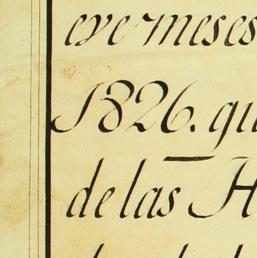 eve meses
1826. qu
de las H